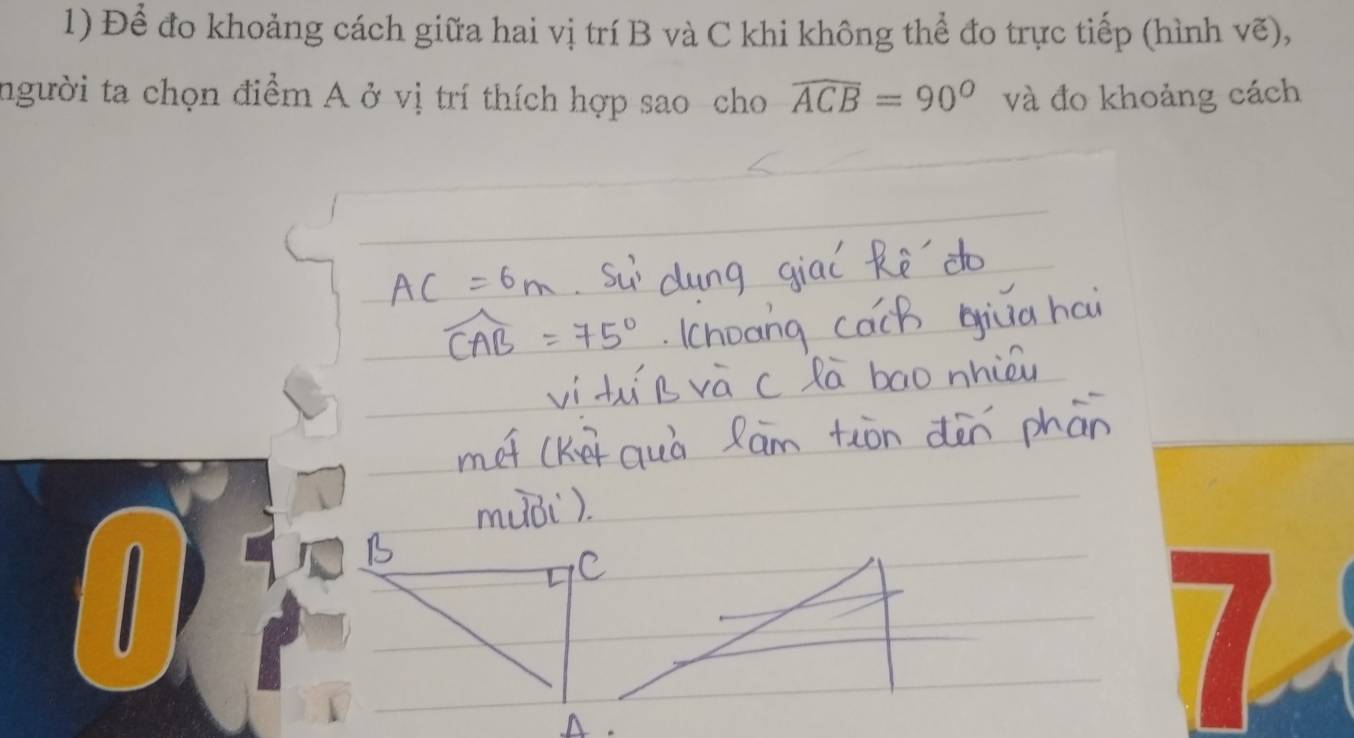 1) Để đo khoảng cách giữa hai vị trí B và C khi không thể đo trực tiếp (hình vẽ),
người ta chọn điểm A ở vị trí thích hợp sao cho \widehat{ACB} = 90⁰ và đo khoảng cách
AC = 6m. Sử dụng giác kế đo
\widehat{CAB} = 75⁰. Khoảng cách giữa hai
vị trí B và C là bao nhiêu
mét (Kết quả làm tròn đến phần
mười).
B C
A.
0 1 7